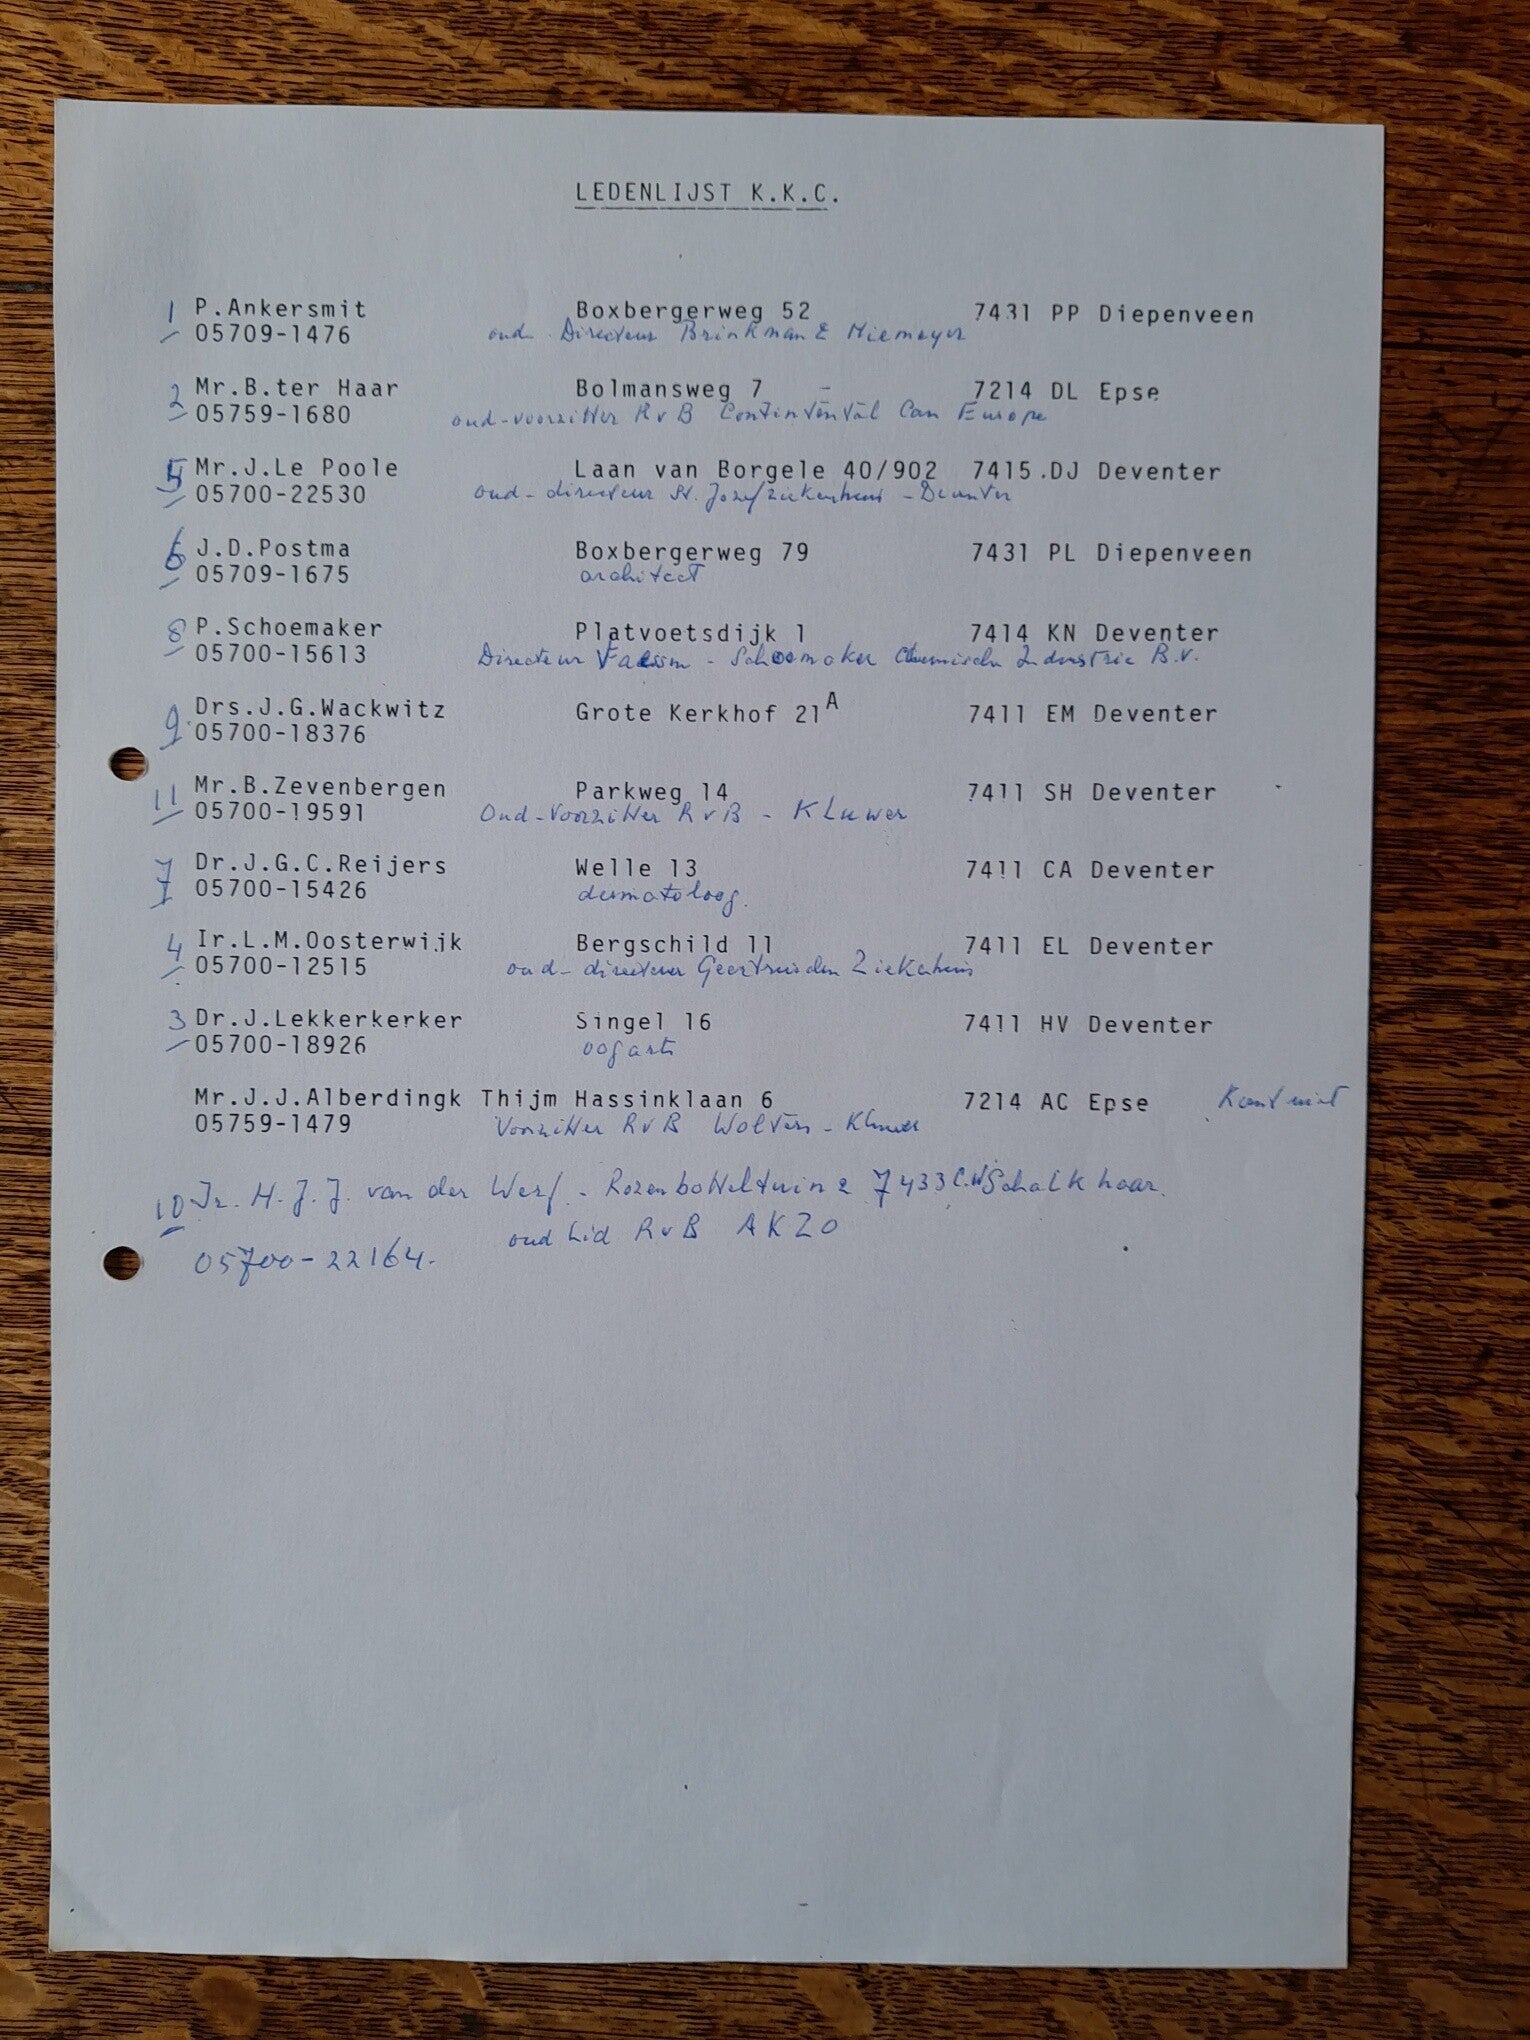 LEDENLIJST K.K.C.
1 P.Ankersmit Boxbergerweg 52 7431 PP Diepenveen
05709-1476 oud Directeur Brinkman & Niemeyer
2 Mr.B.ter Haar Bolmansweg 7 7214 DL Epse
05759-1680 oud-voorzitter RvB Continental Can Europe
5 Mr.J.Le Poole Laan van Borgele 40/902 7415 DJ Deventer
05700-22530 oud-directeur St. Jozefziekenhuis - Deventer
6 J.D.Postma Boxbergerweg 79 7431 PL Diepenveen
05709-1675 architect
8 P.Schoemaker Platvoetsdijk 1 7414 KN Deventer
05700-15613 Directeur - Schoemaker Chemische Industrie B.V.
9 Drs.J.G.Wackwitz Grote Kerkhof 21A 7411 EM Deventer
05700-18376
11 Mr.B.Zevenbergen Parkweg 14 7411 SH Deventer
05700-19591 Oud-Voorzitter RvB - Kluwer
7 Dr.J.G.C.Reijers Welle 13 7411 CA Deventer
05700-15426 dermatoloog.
4 Ir.L.M.Oosterwijk Bergschild 11 7411 EL Deventer
05700-12515 oud-directeur Geertruiden Ziekenhuis
3 Dr.J.Lekkerkerker Singel 16 7411 HV Deventer
05700-18926 oogarts
Mr.J.J.Alberdingk Thijm Hassinklaan 6 7214 AC Epse Komt niet
05759-1479 Voorzitter RvB Wolters-Kluwer
10 Ir. H.J.J. van der Werf - Rozenbotteltuin 2 7433 CW Schalkhaar.
oud Lid RvB AKZO
05700-22164.